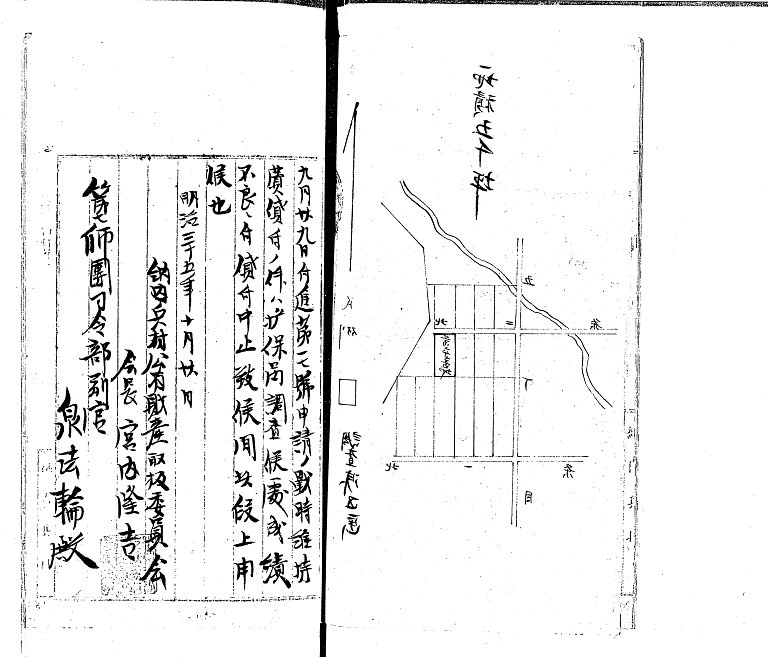 地積五千坪
北
二
条
五
丁
目
北
一
条
調査済
九月廿九日付進第一七號申請ノ戰時維持
費貸付ノ件ハ保局調査候處成績
不良ニ付貸付中止致候間此段上申
候也
明治三十五年十月廿日
納内兵村公有財産取扱委員会
会長 宮内隆吉
第七師團司令部副官
泉法輪殿